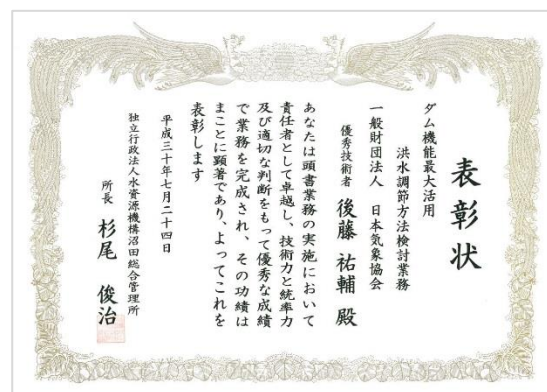 表彰状
ダム機能最大活用
洪水調節方法検討業務
一般財団法人 日本気象協会
優秀技術者 後藤 祐輔 殿
あなたは頭書業務の実施において
責任者として卓越し、技術力と統率力
及び適切な判断をもって優秀な成績
で業務を完成され、その功績は
まことに顕著であり、よってこれを
表彰します
平成三十年七月二十四日
独立行政法人水資源機構沼田総合管理所
所長 杉尾 俊治